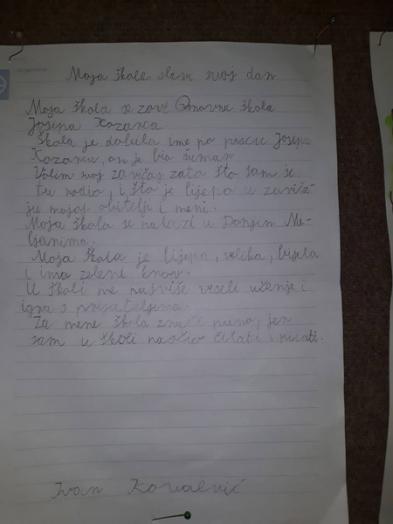 Moja škola slavi svoj dan
Moja škola se zove Osnovna škola
Josipa Kozarca
Škola je dobila ime po piscu Josipu
Kozarcu, on je bio šumar.
Volim svoj zavičaj zato što sam se
tu rodio, i što je lijepa u zavič-
ju mojoj obitelji i meni.
Moja škola se nalazi u Donjim Me-
Moja škola je lijepa, velika, bijela
i ima zeleni krov.
U školi me najviše veseli učenje i
igra s prijateljima.
Za mene škola znači puno, jer
sam u školi naočio čitati i pisati.
Ivan